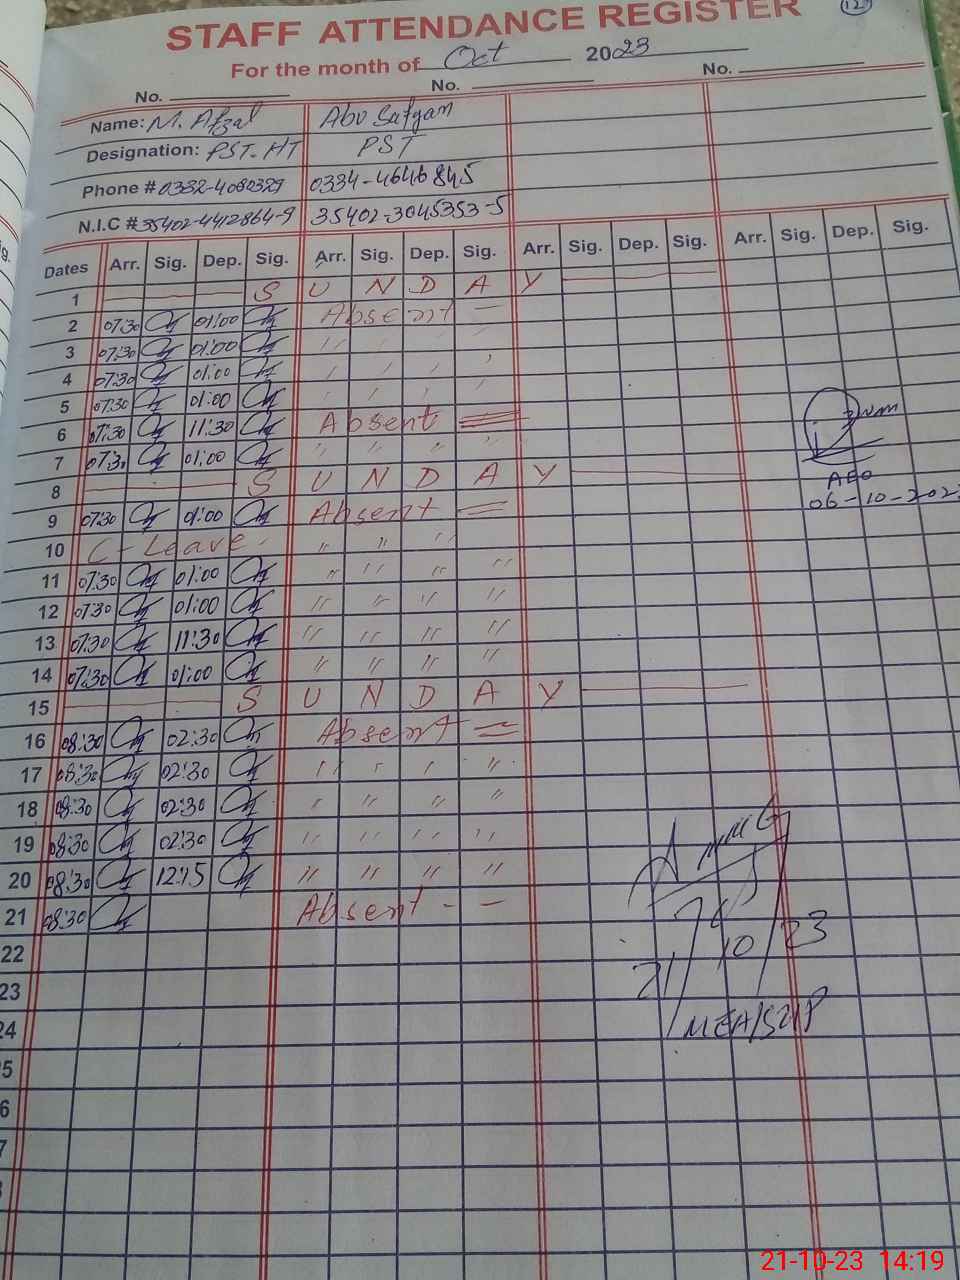 STAFF ATTENDANCE REGISTER
For the month of Oct 2023
No. No. No.
Name: M. Afzal Abu Sufyan
Designation: PST-HT PST
Phone # 0332-4080329 0334-4646845
N.I.C # 35402-4412864-9 35402-3045353-5
Dates Arr. Sig. Dep. Sig. Arr. Sig. Dep. Sig. Arr. Sig. Dep. Sig. Arr. Sig. Dep. Sig.
1 S U N D A Y
2 07:30 01:00 Absent
3 07:30 01:00 " "
4 07:30 01:00
5 07:30 01:00
6 07:30 11:30 Absent
7 07:30 01:00 " " " "
8 S U N D A Y
9 07:30 01:00 Absent
10 C-Leave. " " "
11 07:30 01:00 " " " "
12 07:30 01:00 " " " "
13 07:30 11:30 " " " "
14 07:30 01:00 " " " "
15 S U N D A Y
16 08:30 02:30 Absent
17 08:30 02:30 " " " "
18 08:30 02:30 " " " "
19 08:30 02:30 " " " "
20 08:30 12:15 " " " "
21 08:30 Absent - -
22
23
24
5
6
7
AEO
06-10-202
21/10/23
21-10-23 14:19